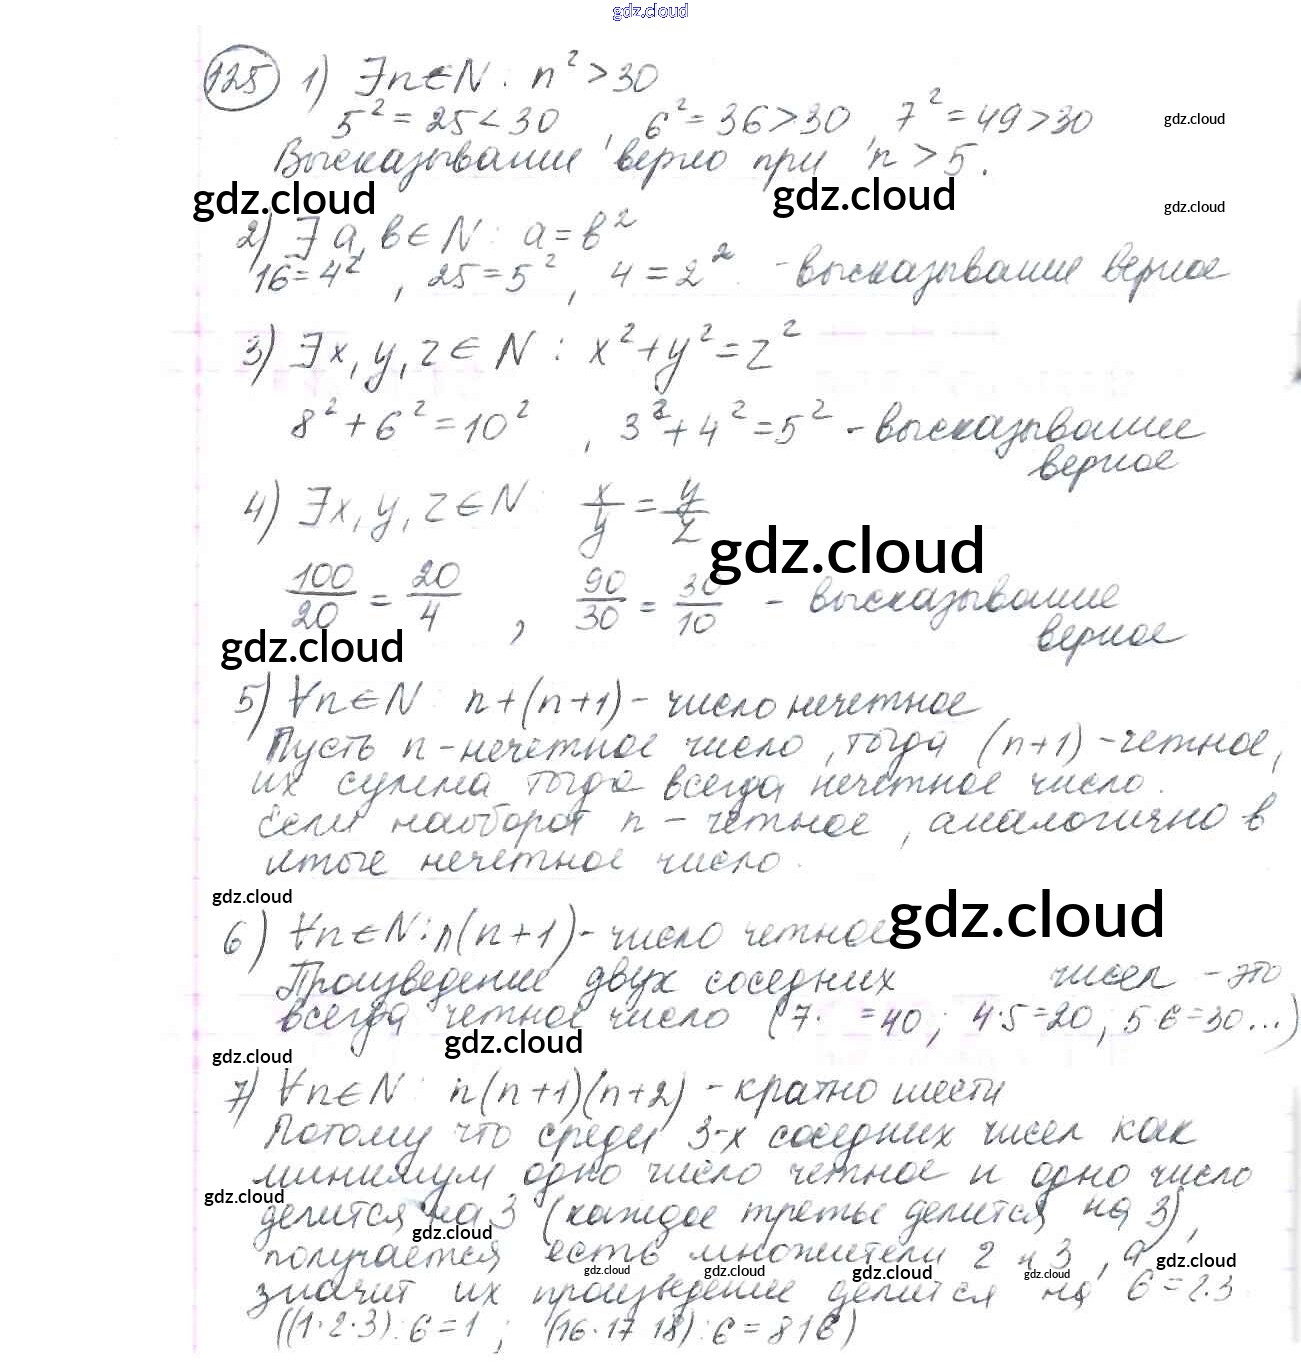 gdz.cloud
125 1) ∃n∈N : n² > 30
5² = 25 < 30 , 6² = 36 > 30 , 7² = 49 > 30
gdz.cloud
Высказывание верно при n > 5.
gdz.cloud gdz.cloud gdz.cloud
2) ∃ a, b ∈ N : a = b²
16 = 4² , 25 = 5² , 4 = 2² - высказывание верное
3) ∃x, y, z ∈ N : x² + y² = z²
8² + 6² = 10² , 3² + 4² = 5² - высказывание
верное
4) ∃x, y, z ∈ N : x/y = y/z
gdz.cloud
100/20 = 20/4 , 90/30 = 30/10 - высказывание
верное
gdz.cloud
5) ∀n∈N : n+(n+1) - число нечетное
Пусть n - нечетное число, тогда (n+1) - четное,
их сумма тогда всегда нечетное число.
Если наоборот n - четное, аналогично в
итоге нечетное число.
gdz.cloud
6) ∀n∈N : n(n+1) - число четное
gdz.cloud
Произведение двух соседних чисел - это
всегда четное число (7· =40; 4·5=20; 5·6=30...)
gdz.cloud
gdz.cloud
7) ∀n∈N : n(n+1)(n+2) - кратно шести
Потому что среди 3-х соседних чисел как
минимум одно число четное и одно число
gdz.cloud
делится на 3 (каждое третье делится на 3),
gdz.cloud
получается есть множители 2 и 3, а
gdz.cloud gdz.cloud gdz.cloud gdz.cloud gdz.cloud
значит их произведение делится на 6 = 2·3
((1·2·3):6=1 ; (16·17·18):6=816)